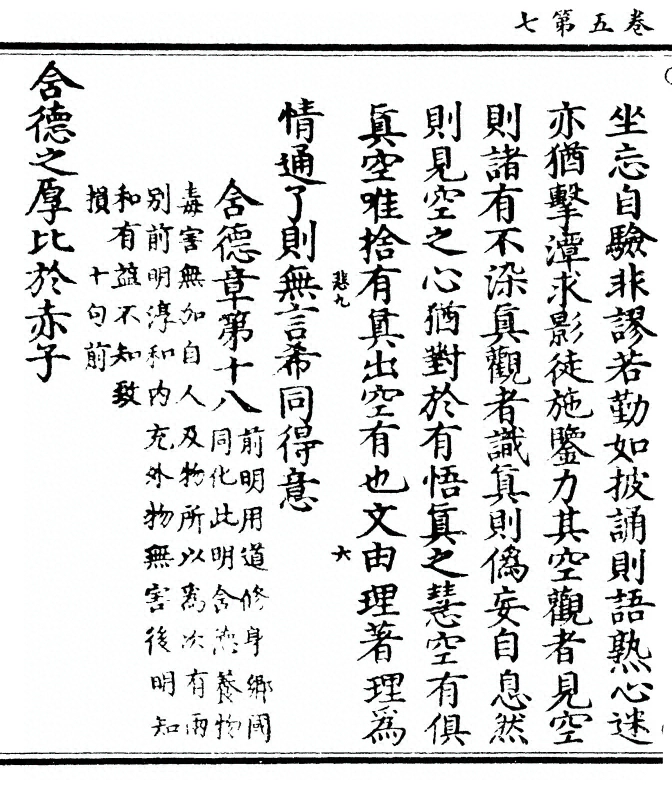 卷五第七
坐忘自驗非謬若勤如披誦則語熟心迷
亦猶擊潭求影徒施鑒力其空觀者見空
則諸有不染眞觀者識眞則僞妄自息然
則見空之心猶對於有悟眞之慧空有俱
眞空唯捨有眞出空有也文由理著理爲
悲九
六
情通了則無言希同得意
含德章第十八
前明用道修身鄉國
同化此明含德養物
毒害無加自人及物所以爲次有兩
別前明淳和內充外物無害後明知
和有益不知致
損十句前
含德之厚比於赤子